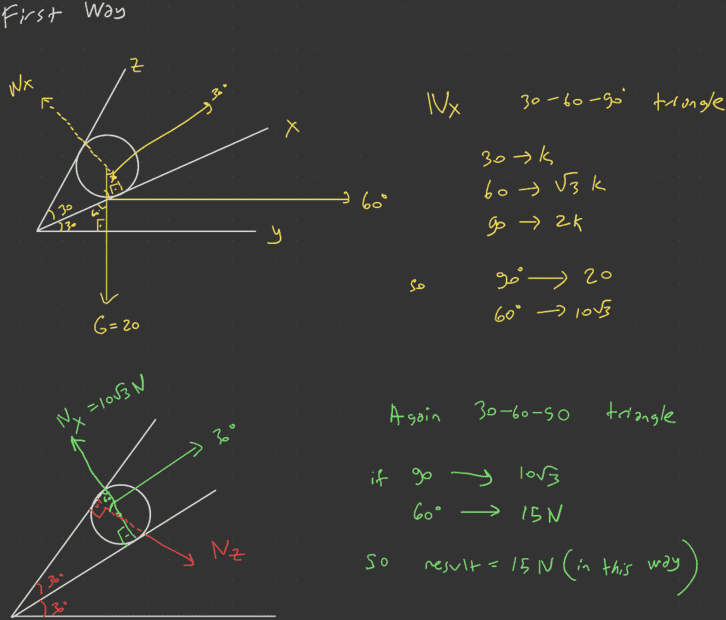 First Way
Z
Nx
30°
X
30
60
30°
30
60°
y
G=20
Nx 30-60-90° triangle
30 → k
60 → √3 k
90 → 2k
so 90° → 20
60° → 10√3
Nx=10√3 N
30°
60
Nz
30°
30°
Again 30-60-90 triangle
if 90 → 10√3
60° → 15N
so result = 15N (in this way)